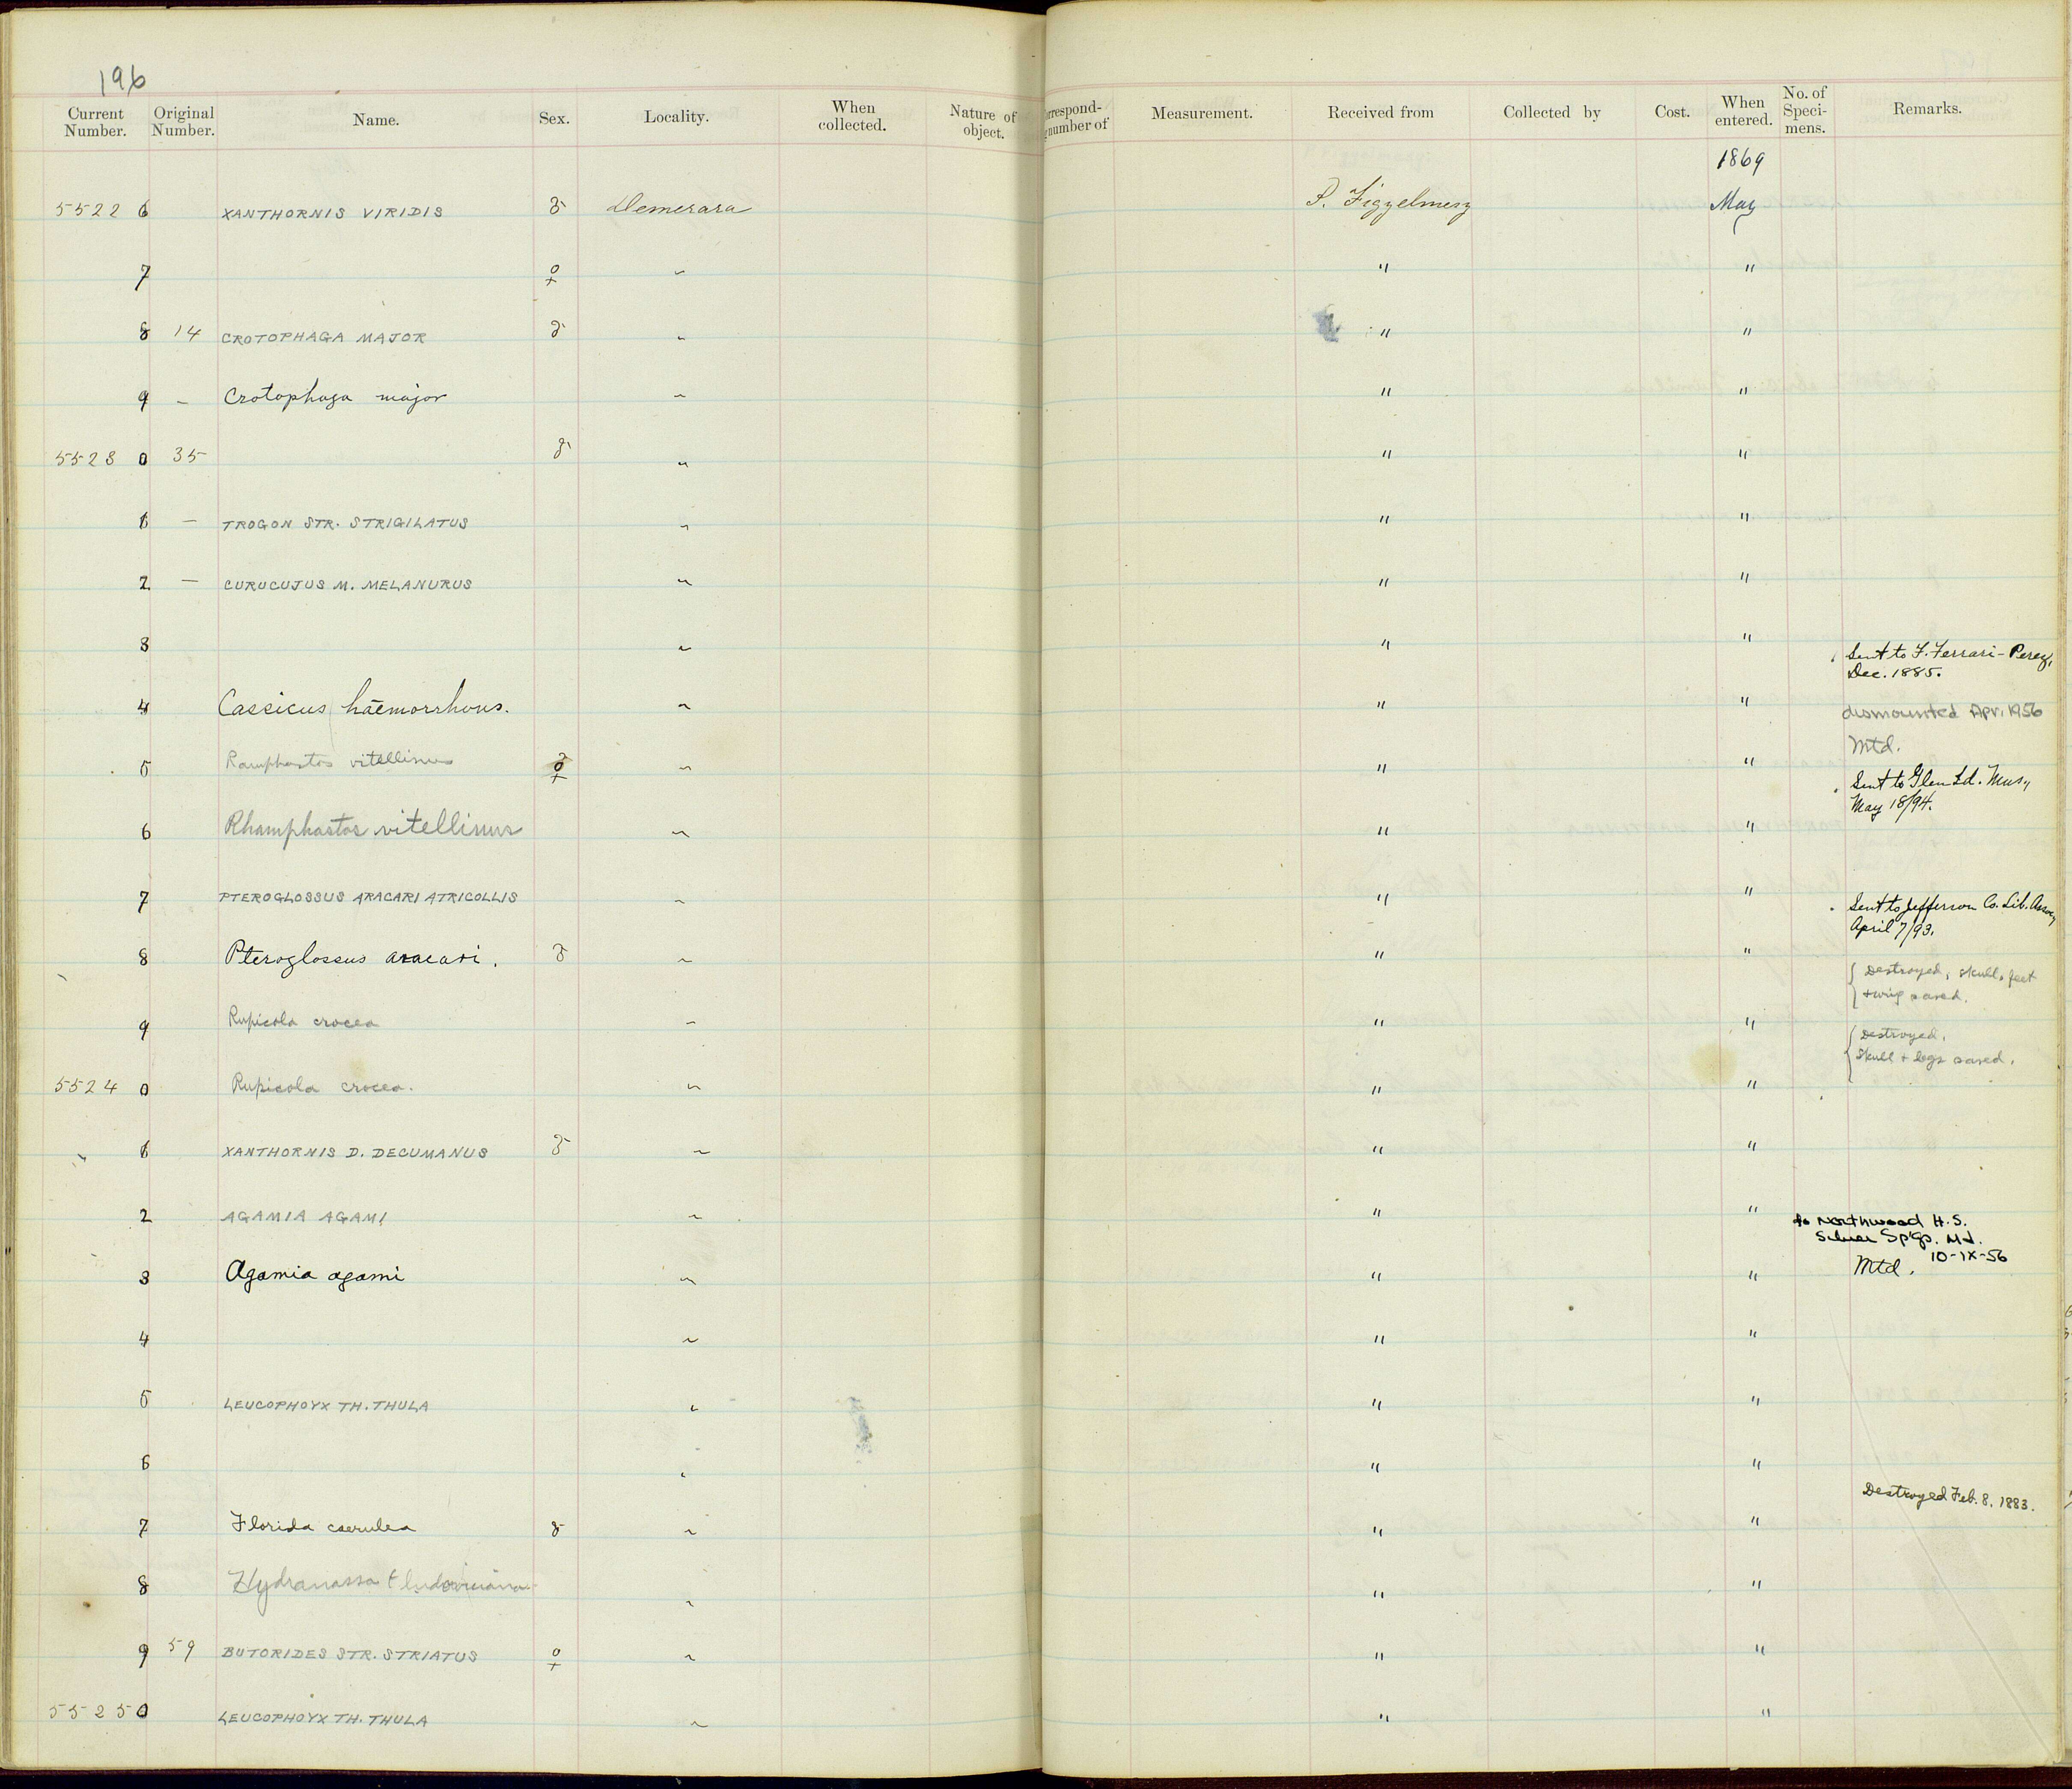 196
Current Number. Original Number. Name. Sex. Locality. When collected. Nature of object. orrespond- number of Measurement. Received from Collected by Cost. When entered. No. of Speci- mens. Remarks.
1869
55226 XANTHORNIS VIRIDIS ♂ Demerara May
7 ♀ " " "
8 14 CROTOPHAGA MAJOR ♂ " " "
9 – Crotophaga major " " "
55230 35 ♂ " " "
1 – TROGON STR. STRIGILATUS " " "
2 – CURUCUJUS M. MELANURUS " " "
3 " " " Sent to F. Ferrari-Perez, Dec. 1885.
4 Cassicus haemorrhous. " " " dismounted Apr. 1956
Mtd.
5 Ramphastos vitellinus ♀ " " " Sent to Glen Ed. Mus., May 18/94.
6 Rhamphastos vitellinus " " "
7 PTEROGLOSSUS ARACARI ATRICOLLIS " " " Sent to Jefferson Co. Lib. Assoc, April 7/93.
8 Pteroglossus aracari. ♂ " " " Destroyed, skull, feet + wing saved.
9 Rupicola crocea " " " Destroyed. Skull + legs saved.
55240 Rupicola crocea. " " "
1 XANTHORNIS D. DECUMANUS ♂ " " "
2 AGAMIA AGAMI " " " to Northwood H.S.
Silver Sp'gs. Md.
10-IX-56
3 Agamia agami " " " Mtd.
4 " " "
5 LEUCOPHOYX TH. THULA " " "
6 " " "
7 Florida caerulea ♂ " " " Destroyed Feb. 8. 1883.
8 Hydranassa t ludoviciana " " "
9 59 BUTORIDES STR. STRIATUS ♀ " " "
55250 LEUCOPHOYX TH. THULA " " "